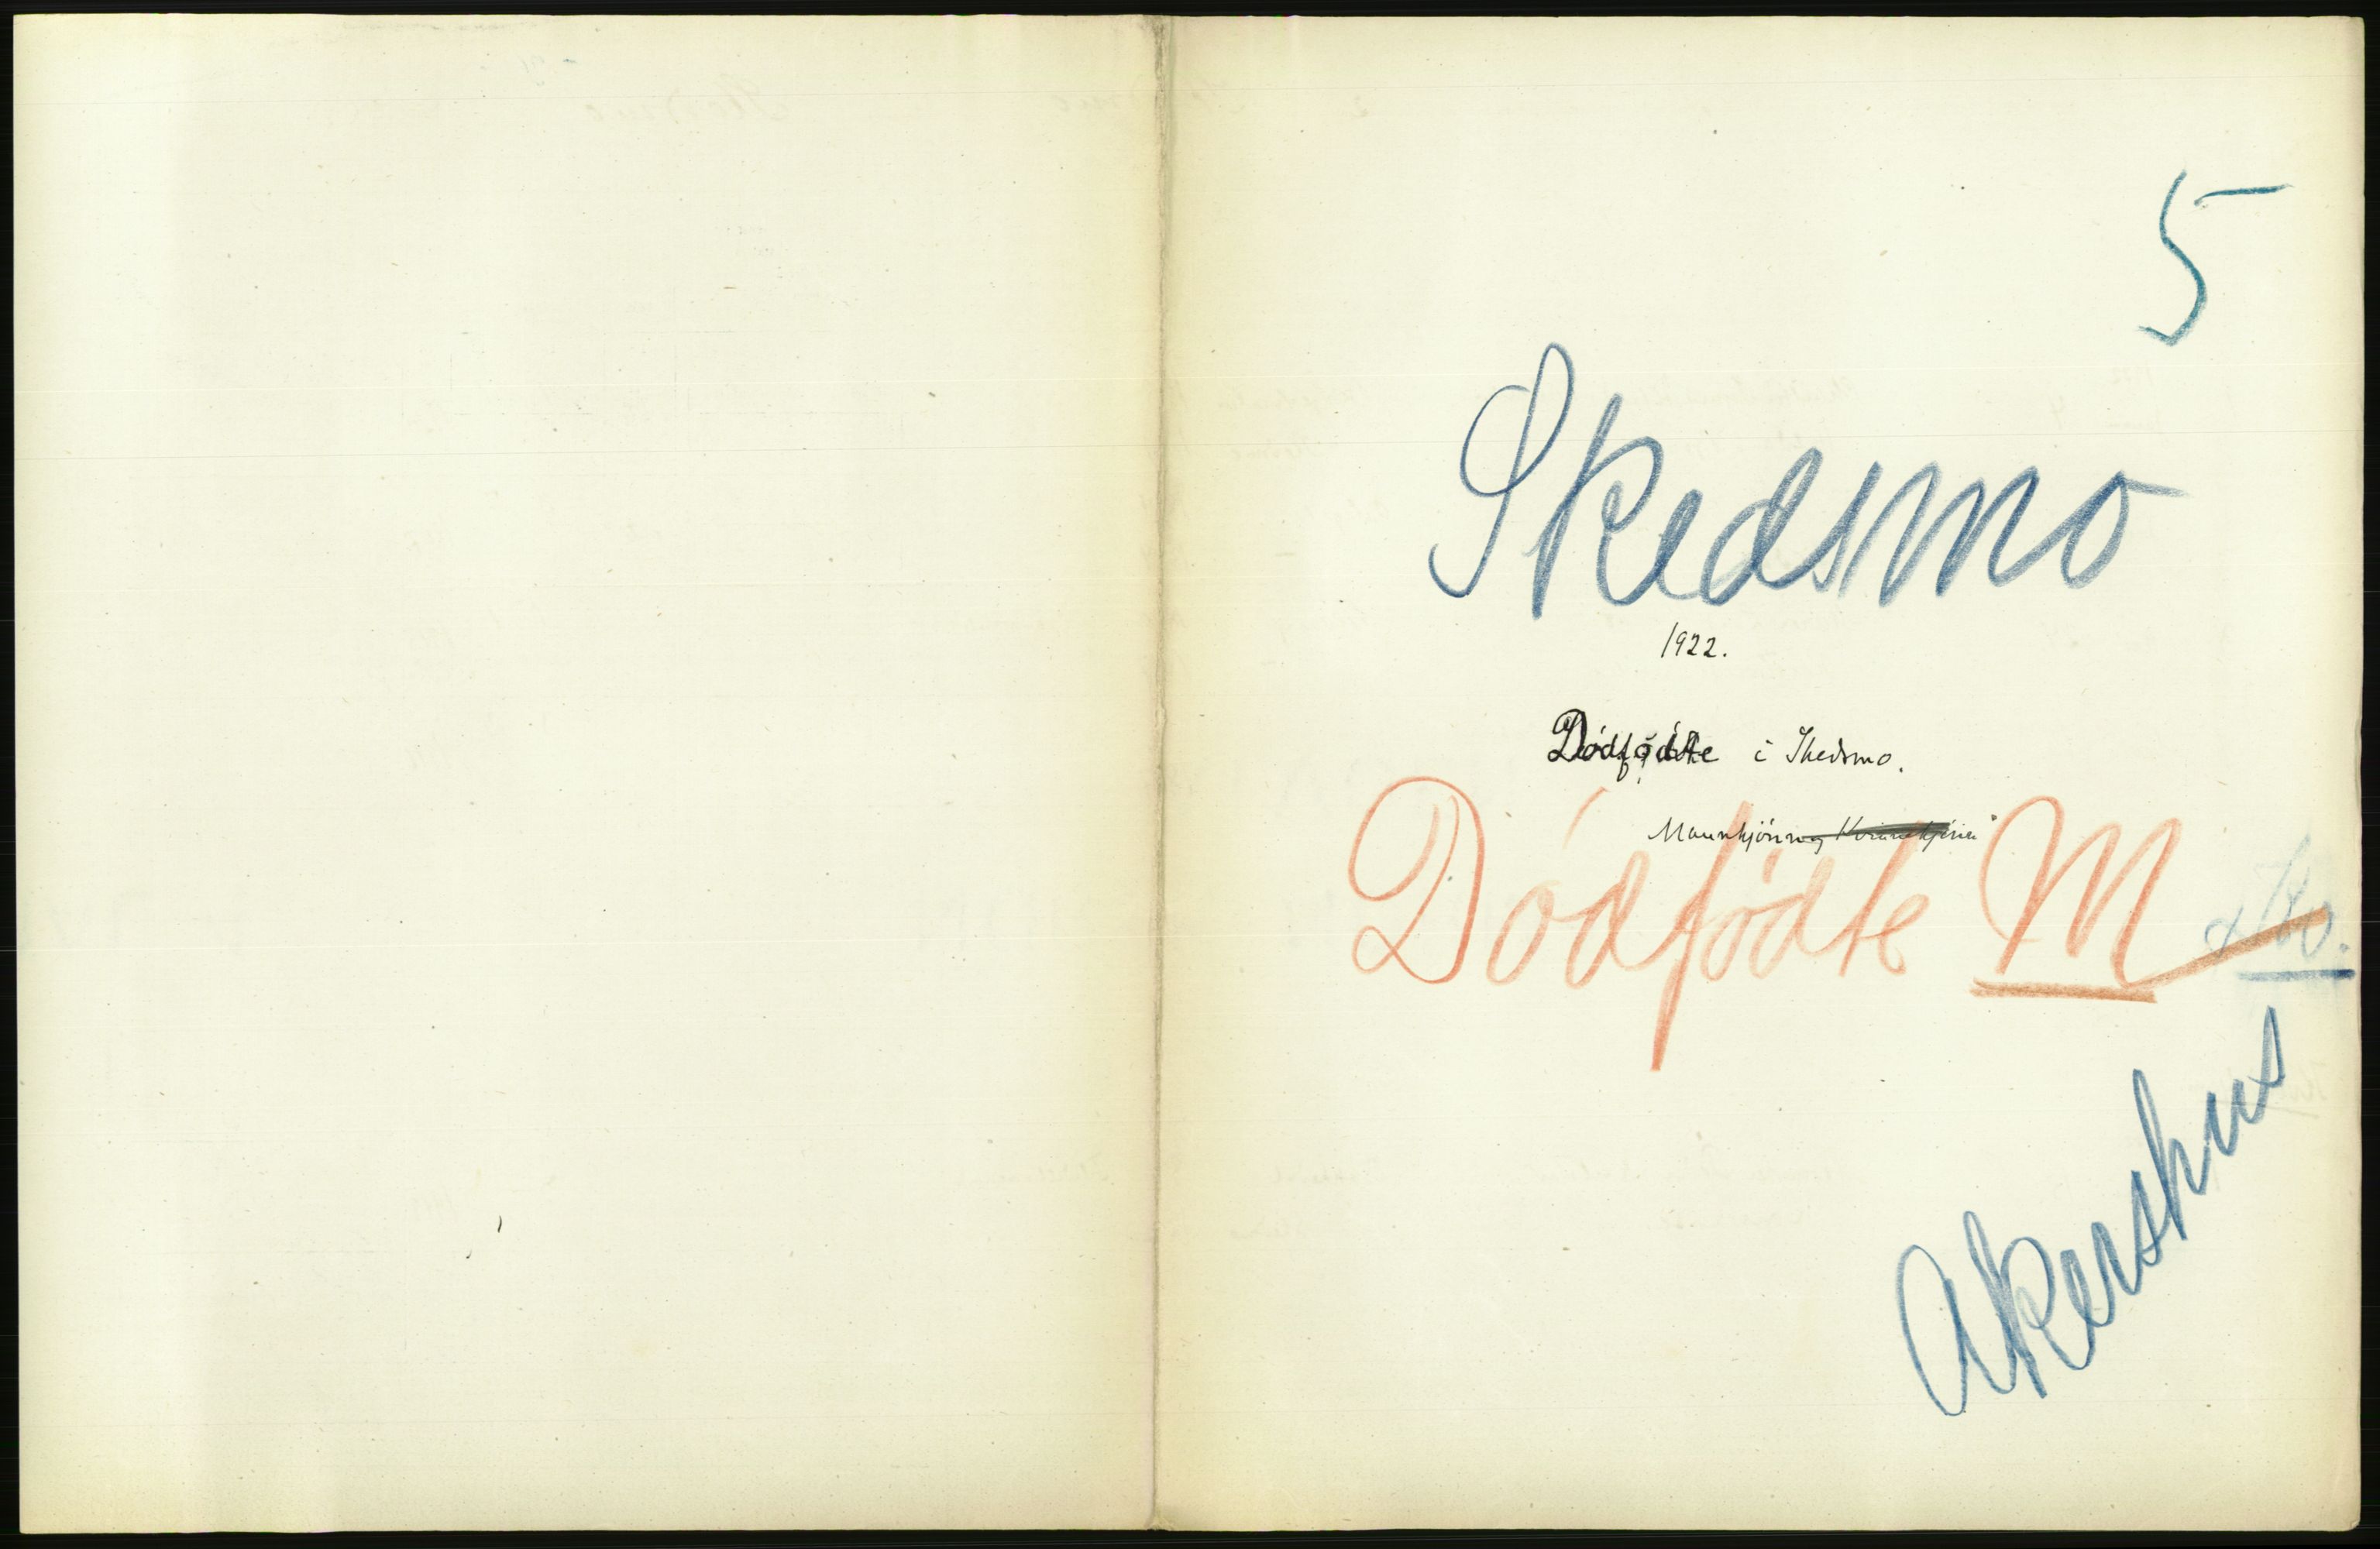 5
Skedsmo
1922.
Dödfödte i Skedsmo.
Mannkjönn og Kvinnekjönn
Dödfödte M & Kv.
Akershus